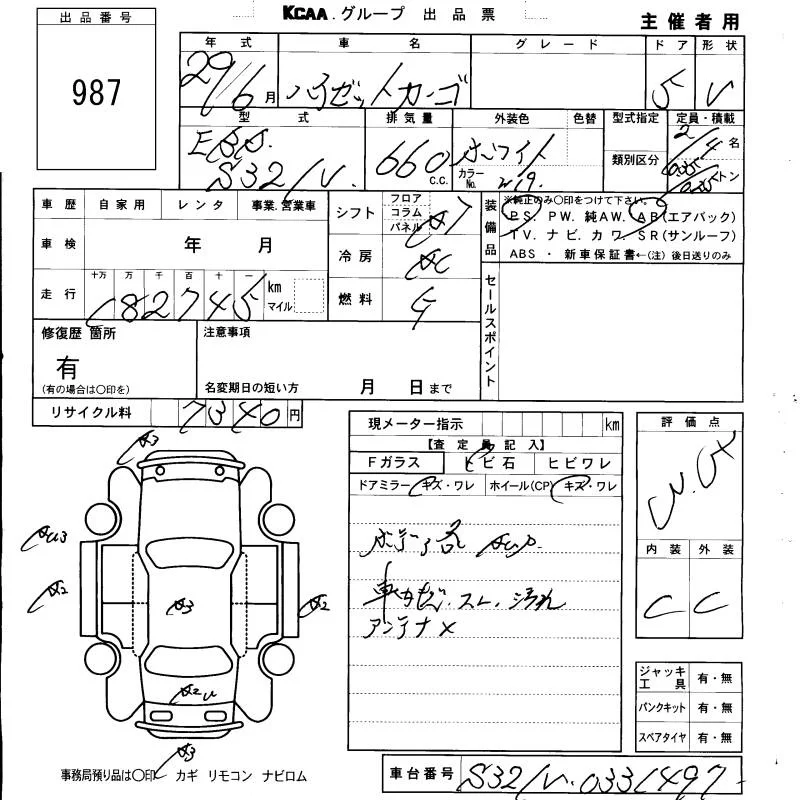 出品番号
987
KCAA.グループ 出品票
主催者用
年式 車名 グレード ドア 形状
29/6月 ハイゼットカーゴ 5 V
型式 排気量 外装色 色替 型式指定 定員・積載
EBD. 660 c.c. ホワイト 類別区分 2/4名
S321V. カラーNo. W19. トン
車歴 自家用 レンタ 事業.営業車
車検 年 月
走行 十万 万 千 百 十 一
182745 km マイル
シフト フロア コラム パネル AT
冷房 AC
燃料 G
装備品
※純正のみ〇印をつけて下さい。
PS. PW. 純AW. AB(エアバック)
TV. ナビ. カワ. SR(サンルーフ)
ABS ・ 新車保証書←(注) 後日送りのみ
セールスポイント
修復歴 箇所
有
(有の場合は〇印を)
注意事項
名変期日の短い方 月 日まで
リサイクル料 7340円
現メーター指示 km
【査定員記入】
Fガラス トビ石 ヒビワレ
ドアミラー キズ・ワレ ホイール(CP) キズ・ワレ
ボディ各 AUP.
車内キズ.スレ.汚れ
アンテナ×
評価点
内装 外装
C C
ジャッキ工具 有・無
パンクキット 有・無
スペアタイヤ 有・無
A3
AU3
A2
A3
A2
A2U
A3
事務局預り品は〇印 カギ リモコン ナビロム
車台番号 S321V-0331497